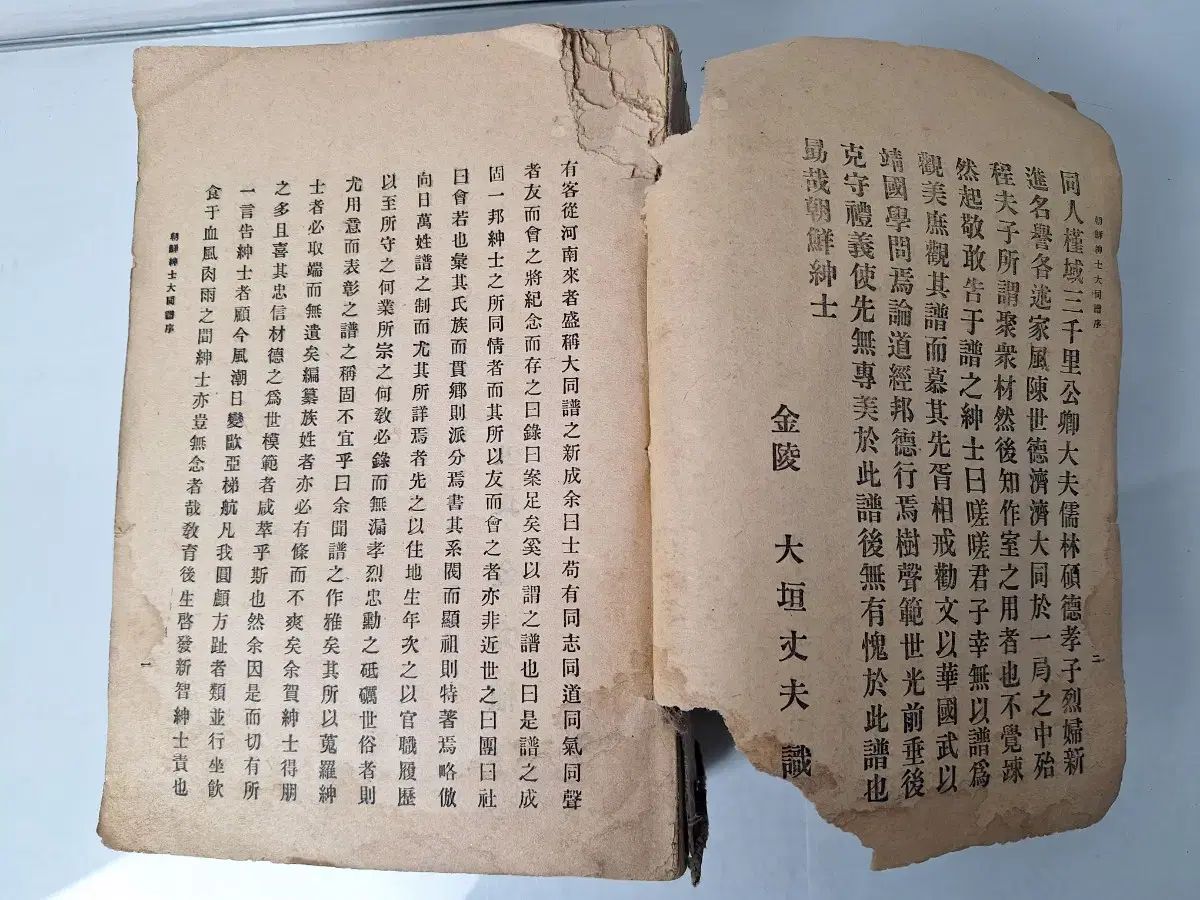 朝鮮紳士大同譜序
二
同人槿域三千里公卿大夫儒林碩德孝子烈婦新
進名譽各述家風陳世德濟濟大同於一局之中殆
程夫子所謂聚衆材然後知作室之用者也不覺竦
然起敬敢告于譜之紳士曰嗟嗟君子幸無以譜爲
觀美庶觀其譜而慕其先胥相戒勸文以華國武以
靖國學問焉論道經邦德行焉樹聲範世光前垂後
克守禮義使先無專美於此譜後無有愧於此譜也
勗哉朝鮮紳士
金陵 大垣丈夫 識
有客從河南來者盛稱大同譜之新成余曰士苟有同志同道同氣同聲
者友而會之將紀念而存之曰錄曰案足矣奚以謂之譜也曰是譜之成
固一邦紳士之所同情者而其所以友而會之者亦非近世之曰團曰社
曰會若也彙其氏族而貫鄕則派分焉書其系閥而顯祖則特著焉略倣
向日萬姓譜之制而尤其所詳焉者先之以住地生年次之以官職履歷
以至所守之何業所宗之何敎必錄而無漏孝烈忠勳之砥礪世俗者則
尤用意而表彰之譜之稱固不宜乎余聞譜之作雅矣其所以蒐羅紳
士者必取端而無遺矣編纂族姓者亦必有條而不爽矣余賀紳士得朋
之多且喜其忠信材德之爲世模範者咸萃乎斯也然余因是而切有所
一言告紳士者顧今風潮日變歐亞梯航凡我圓顱方趾者類並行坐飮
食于血風肉雨之間紳士亦豈無念者哉敎育後生啓發新智紳士責也
朝鮮紳士大同譜序
一